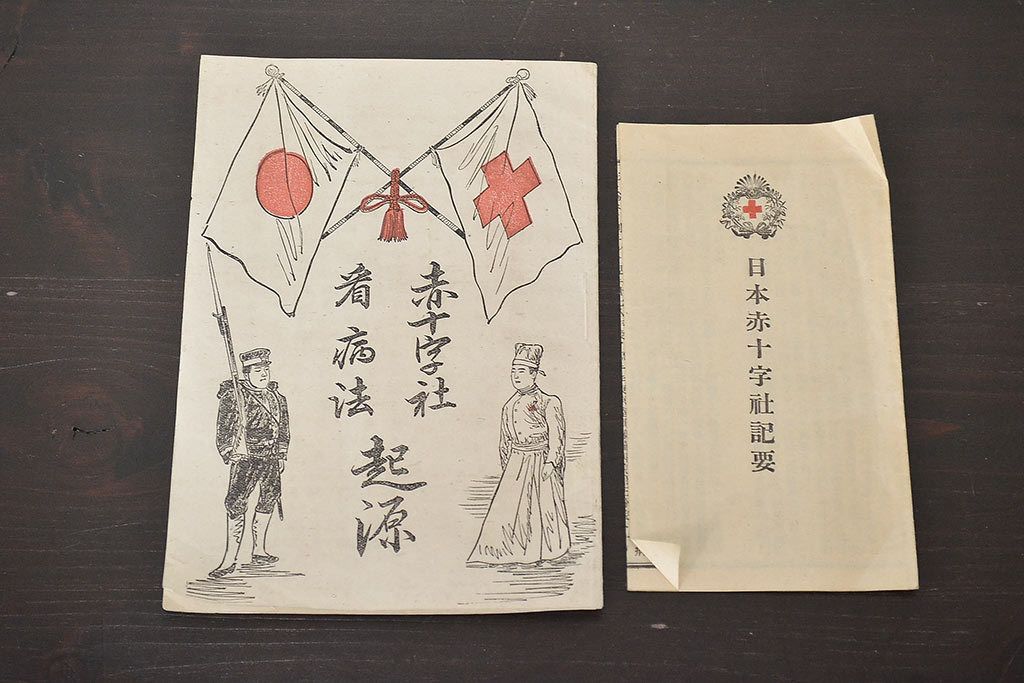 赤十字社
看病法
起源
日本赤十字社記要